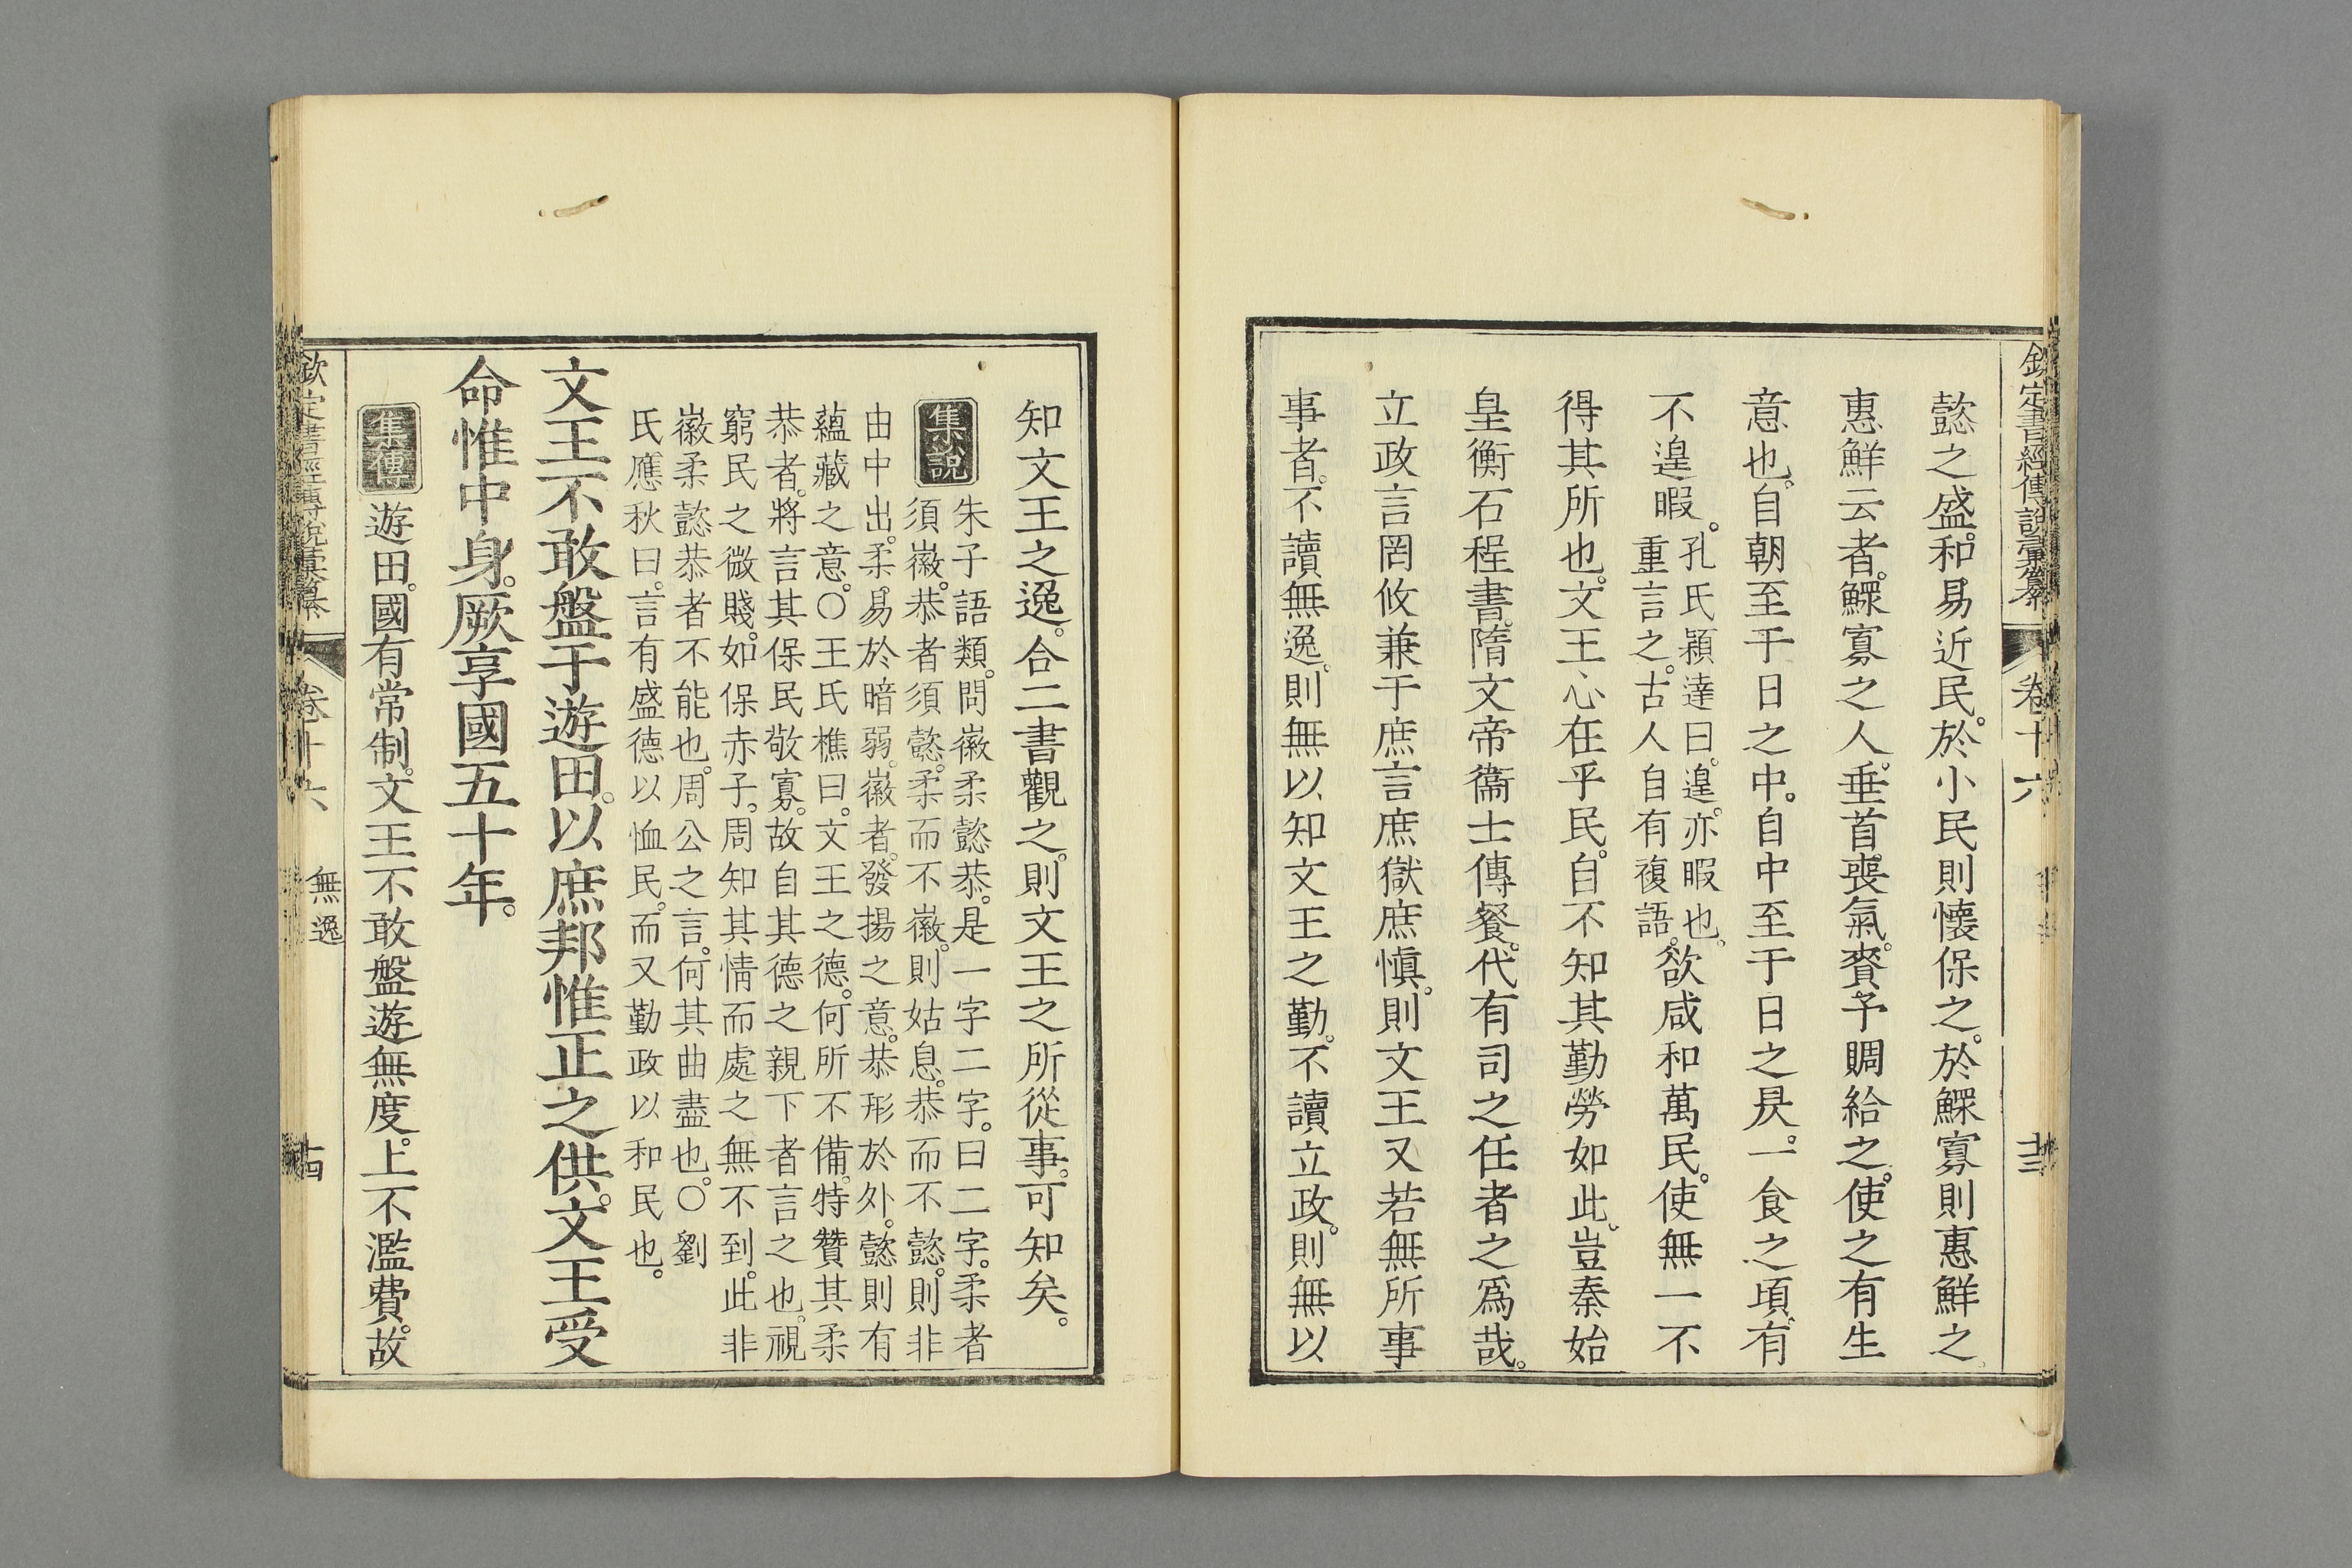 欽定書經傳說彙纂 卷十六
懿之盛。和易近民。於小民則懷保之。於鰥寡則惠鮮之。
惠鮮云者。鰥寡之人。垂首喪氣。賚予賙給之。使之有生
意也。自朝至于日之中。自中至于日之昃。一食之頃。有
不遑暇。
孔氏穎達曰。遑。亦暇也。
重言之。古人自有複語。
欲咸和萬民。使無一不
得其所也。文王心在乎民。自不知其勤勞如此。豈秦始
皇衡石程書。隋文帝衞士傳餐。代有司之任者之爲哉。
立政言罔攸兼于庶言庶獄庶愼。則文王又若無所事
事者。不讀無逸。則無以知文王之勤。不讀立政。則無以
知文王之逸。合二書觀之。則文王之所從事。可知矣。
集說
朱子語類。問徽柔懿恭。是一字二字。曰二字。柔者
須徽。恭者須懿。柔而不徽。則姑息。恭而不懿。則非
由中出。柔易於暗弱。徽者。發揚之意。恭形於外。懿則有
蘊藏之意。○王氏樵曰。文王之德。何所不備。特贊其柔
恭者。將言其保民敬寡。故自其德之親下者言之也。視
窮民之微賤。如保赤子。周知其情而處之無不到。此非
徽柔懿恭者不能也。周公之言。何其曲盡也。○劉
氏應秋曰。言有盛德以恤民。而又勤政以和民也。
文王不敢盤于遊田。以庶邦惟正之供。文王受
命惟中身。厥享國五十年。
集傳
遊田。國有常制。文王不敢盤遊無度。上不濫費。故
欽定書經傳說彙纂 卷十六 無逸 十四